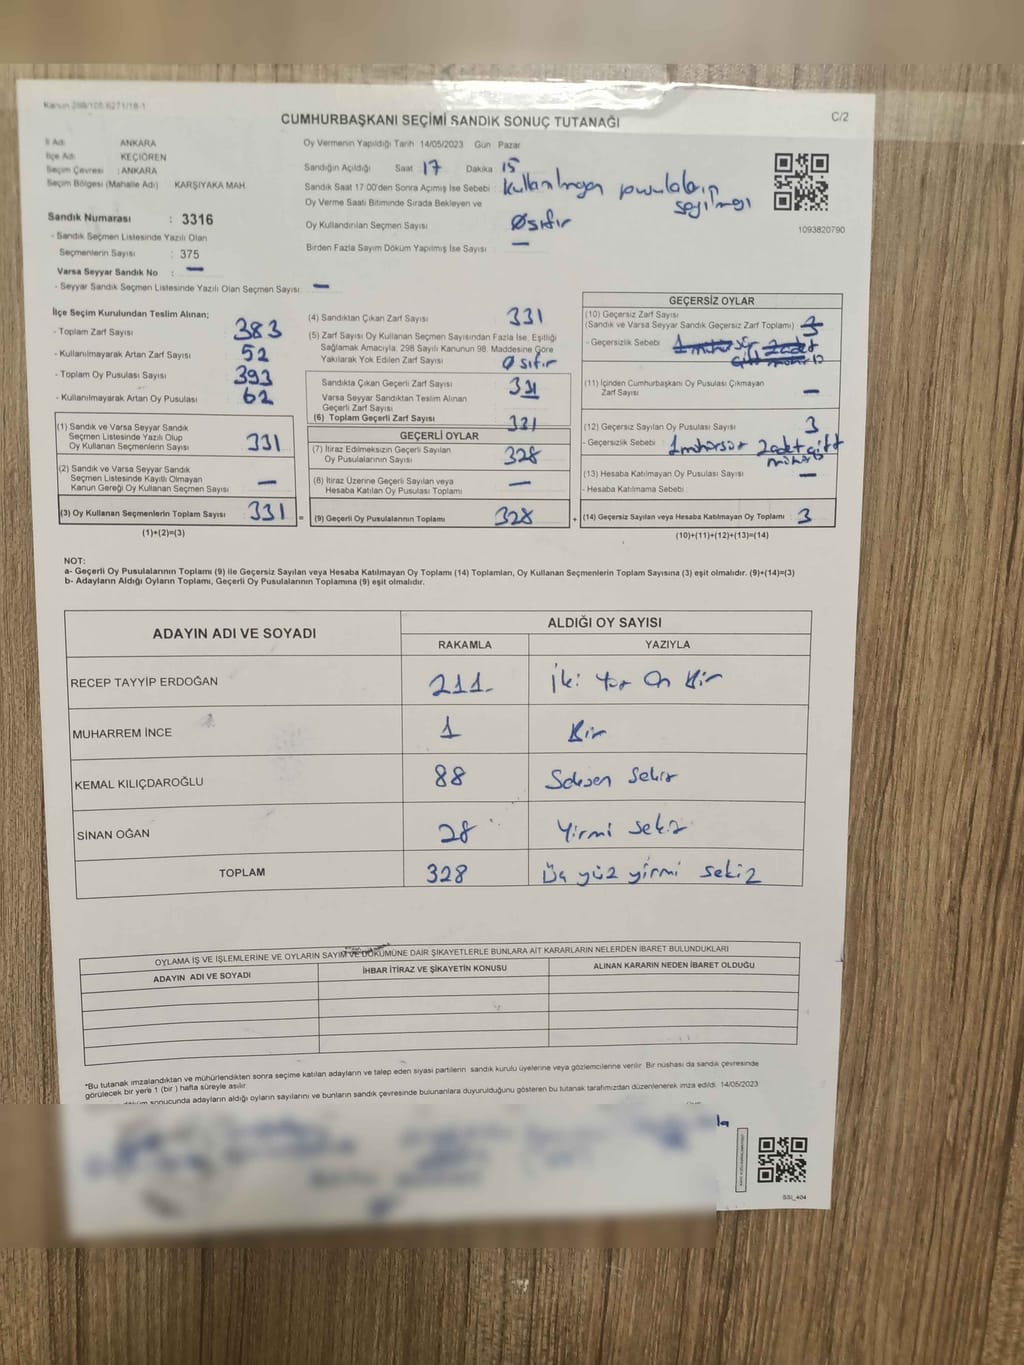 Kanun 298/105 6271/18-1
C/2
CUMHURBAŞKANI SEÇİMİ SANDIK SONUÇ TUTANAĞI
İl Adı : ANKARA
İlçe Adı : KEÇİÖREN
Seçim Çevresi : ANKARA
Seçim Bölgesi (Mahalle Adı) KARŞIYAKA MAH.
Sandık Numarası : 3316
- Sandık Seçmen Listesinde Yazılı Olan
Seçmenlerin Sayısı : 375
Varsa Seyyar Sandık No : —
- Seyyar Sandık Seçmen Listesinde Yazılı Olan Seçmen Sayısı : —
Oy Vermenin Yapıldığı Tarih 14/05/2023 Gün Pazar
Sandığın Açıldığı Saat 17 Dakika 15
Sandık Saat 17.00'den Sonra Açılmış İse Sebebi kullanılmayan pusulaların sayılması
Oy Verme Saati Bitiminde Sırada Bekleyen ve
Oy Kullandırılan Seçmen Sayısı Ø sıfır
Birden Fazla Sayım Döküm Yapılmış İse Sayısı —
1093820790
İlçe Seçim Kurulundan Teslim Alınan;
- Toplam Zarf Sayısı 383
- Kullanılmayarak Artan Zarf Sayısı 52
- Toplam Oy Pusulası Sayısı 393
- Kullanılmayarak Artan Oy Pusulası 62
(1) Sandık ve Varsa Seyyar Sandık
Seçmen Listesinde Yazılı Olup
Oy Kullanan Seçmenlerin Sayısı 331
(2) Sandık ve Varsa Seyyar Sandık
Seçmen Listesinde Kayıtlı Olmayan
Kanun Gereği Oy Kullanan Seçmen Sayısı —
(3) Oy Kullanan Seçmenlerin Toplam Sayısı 331 =
(1)+(2)=(3)
(4) Sandıktan Çıkan Zarf Sayısı 331
(5) Zarf Sayısı Oy Kullanan Seçmen Sayısından Fazla İse, Eşitliği
Sağlamak Amacıyla: 298 Sayılı Kanunun 98. Maddesine Göre
Yakılarak Yok Edilen Zarf Sayısı Ø sıfır
Sandıkta Çıkan Geçerli Zarf Sayısı 331
Varsa Seyyar Sandıktan Teslim Alınan
Geçerli Zarf Sayısı
(6) Toplam Geçerli Zarf Sayısı 331
GEÇERLİ OYLAR
(7) İtiraz Edilmeksizin Geçerli Sayılan
Oy Pusulalarının Sayısı 328
(8) İtiraz Üzerine Geçerli Sayılan veya
Hesaba Katılan Oy Pusulası Toplamı —
(9) Geçerli Oy Pusulalarının Toplamı 328 +
GEÇERSİZ OYLAR
(10) Geçersiz Zarf Sayısı
(Sandık ve Varsa Seyyar Sandık Geçersiz Zarf Toplamı) 3
- Geçersizlik Sebebi :
(11) İçinden Cumhurbaşkanı Oy Pusulası Çıkmayan
Zarf Sayısı —
(12) Geçersiz Sayılan Oy Pusulası Sayısı 3
- Geçersizlik Sebebi : 1 mühürsüz 2 adet çift mühür
(13) Hesaba Katılmayan Oy Pusulası Sayısı —
- Hesaba Katılmama Sebebi :
(14) Geçersiz Sayılan veya Hesaba Katılmayan Oy Toplamı : 3
(10)+(11)+(12)+(13)=(14)
NOT:
a- Geçerli Oy Pusulalarının Toplamı (9) ile Geçersiz Sayılan veya Hesaba Katılmayan Oy Toplamı (14) Toplamları, Oy Kullanan Seçmenlerin Toplam Sayısına (3) eşit olmalıdır. (9)+(14)=(3)
b- Adayların Aldığı Oyların Toplamı, Geçerli Oy Pusulalarının Toplamına (9) eşit olmalıdır.
ADAYIN ADI VE SOYADI
ALDIĞI OY SAYISI
RAKAMLA YAZIYLA
RECEP TAYYİP ERDOĞAN 211 İki yüz On Bir
MUHARREM İNCE 1 Bir
KEMAL KILIÇDAROĞLU 88 Seksen Sekiz
SİNAN OĞAN 28 Yirmi sekiz
TOPLAM 328 Üç yüz yirmi sekiz
OYLAMA İŞ VE İŞLEMLERİNE VE OYLARIN SAYIM VE DÖKÜMÜNE DAİR ŞİKAYETLERLE BUNLARA AİT KARARLARIN NELERDEN İBARET BULUNDUKLARI
ADAYIN ADI VE SOYADI İHBAR İTİRAZ VE ŞİKAYETİN KONUSU ALINAN KARARIN NEDEN İBARET OLDUĞU
*Bu tutanak imzalandıktan ve mühürlendikten sonra seçime katılan adayların ve talep eden siyasi partilerin sandık kurulu üyelerine veya gözlemcilerine verilir. Bir nüshası da sandık çevresinde
görülecek bir yere 1 (bir ) hafta süreyle asılır.
sonucunda adayların aldığı oyların sayılarını ve bunların sandık çevresinde bulunanlara duyurulduğunu gösteren bu tutanak tarafımızdan düzenlenerek imza edildi. 14/05/2023
SSI_404